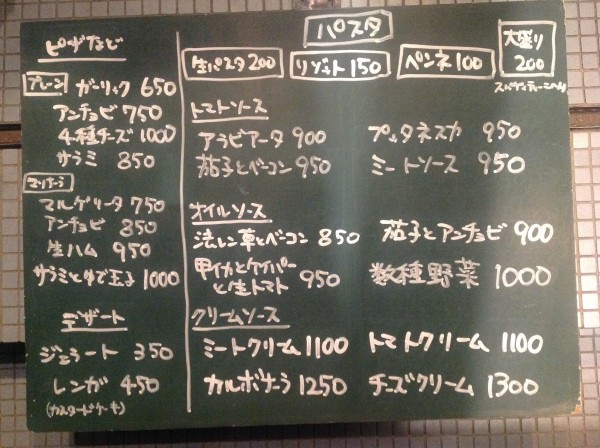 ピザなど
プレーン ガーリック 650
アンチョビ 750
4種チーズ 1000
サラミ 850
マルゲリータ 750
アンチョビ 850
生ハム 950
サラミとゆで玉子 1000
デザート
ジェラート 350
レンガ 450
(カスタードケーキ)
パスタ
生パスタ 200
リゾット 150
ペンネ 100
大盛り
200
トマトソース
アラビアータ 900
プッタネスカ 950
茄子とベーコン 950
ミートソース 950
オイルソース
法レン草とベーコン 850
茄子とアンチョビ 900
甲イカとケイパー
と生トマト 950
数種野菜 1000
クリームソース
ミートクリーム 1100
トマトクリーム 1100
カルボナーラ 1250
チーズクリーム 1300